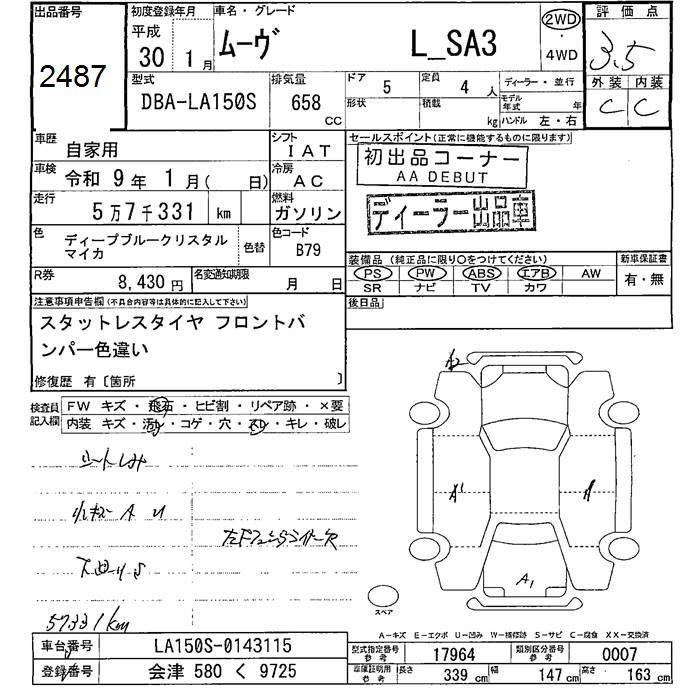 出品番号
2487
初度登録年月
平成
30年 1月
車名・グレード
ムーヴ L_SA3
2WD
4WD
評価点
3.5
外装 内装
C C
型式
DBA-LA150S
排気量
658 cc
ドア 5
定員 4 人
形状
積載 kg
ディーラー・並行
モデル年式 年
ハンドル 左・右
車歴 自家用
シフト IAT
車検 令和 9年 1月( 日)
冷房 AC
走行 5万7千331 km
燃料 ガソリン
色 ディープブルークリスタルマイカ
色替
色コード B79
R券 8,430円
名変通知期限 月 日
セールスポイント(正常に機能するものに限ります)
初出品コーナー
AA DEBUT
ディーラー出品車
装備品(純正品に限り○をつけてください)
PS PW ABS エアB AW
SR ナビ TV カワ
新車保証書
有・無
後日品
注意事項申告欄(不具合内容等は具体的に記入して下さい)
スタットレスタイヤ フロントバ
ンパー色違い
修復歴 有〔箇所 〕
検査員記入欄
FW キズ・飛石・ヒビ割・リペア跡・×要
内装 キズ・汚れ・コゲ・穴・スレ・キレ・破レ
シートしみ
A U
57331km
A2
A1
A
A1
スペア
A-キズ E-エクボ U-凹み W-補修跡 S-サビ C-腐食 XX-交換済
車台番号 LA150S-0143115
登録番号 会津 580 く 9725
型式指定番号 参考 17964
類別区分番号 参考 0007
車庫証明用 参考 長さ 339 cm 幅 147 cm 高さ 163 cm